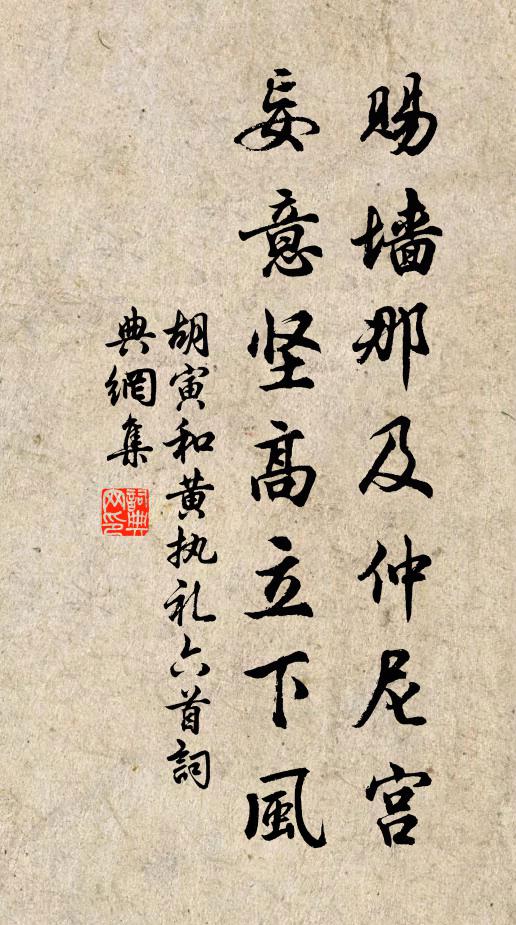 赐墙那及仲尼宫
妄意坚高立下風
胡寅和黄执礼六首詞
典網集
詞典
网印